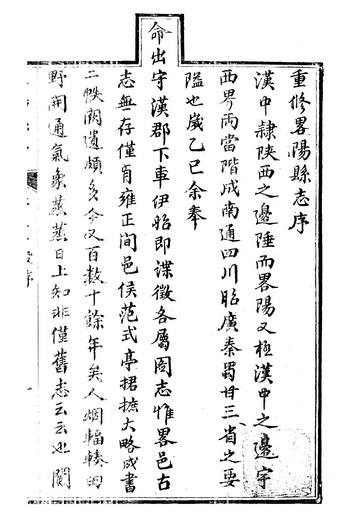 重修畧陽縣志序
漢中隷陝西之邊陲而畧陽又極漢中之邊宇
西界両當階成南通四川昭廣秦蜀廿三省之要
隘也歲乙巳余奉
命出守漢郡下車伊始即諜徵各屬圖志惟畧邑古
志無存僅有雍正间邑侯范式亭捃摭大略成書
二帙闕遺頗多今又百數十餘年矣人烟輻輳田
野開通氣象蒸蒸日上知非僅舊志云云也閱